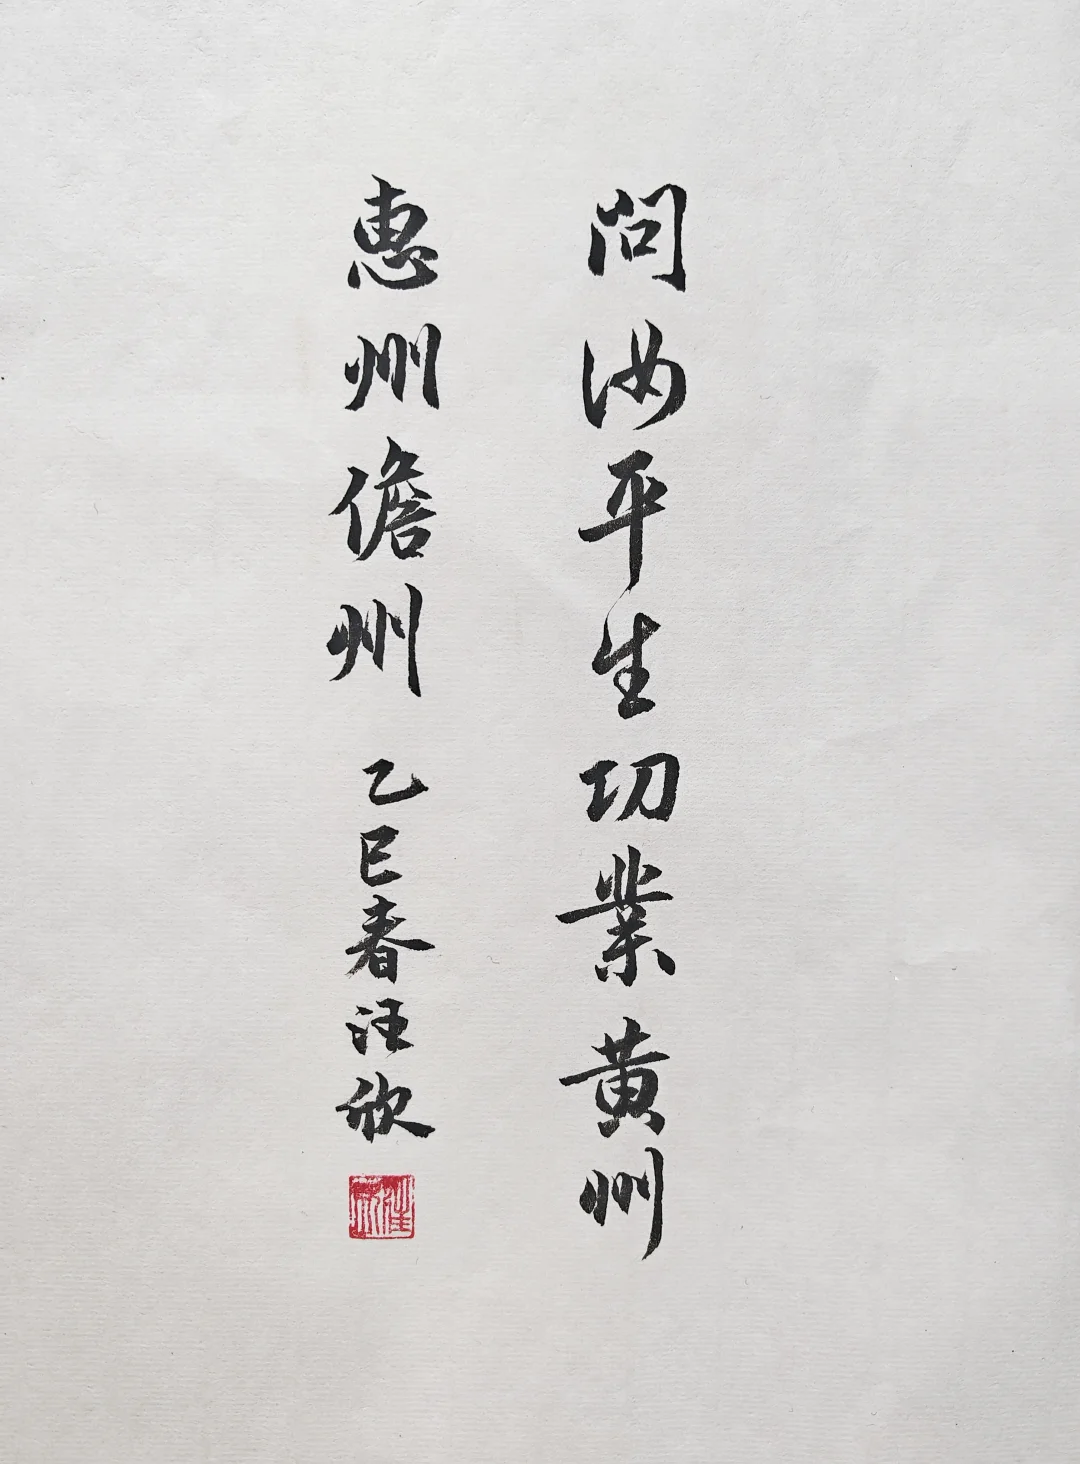 問汝平生功業黄州
惠州儋州 乙巳春汪欣